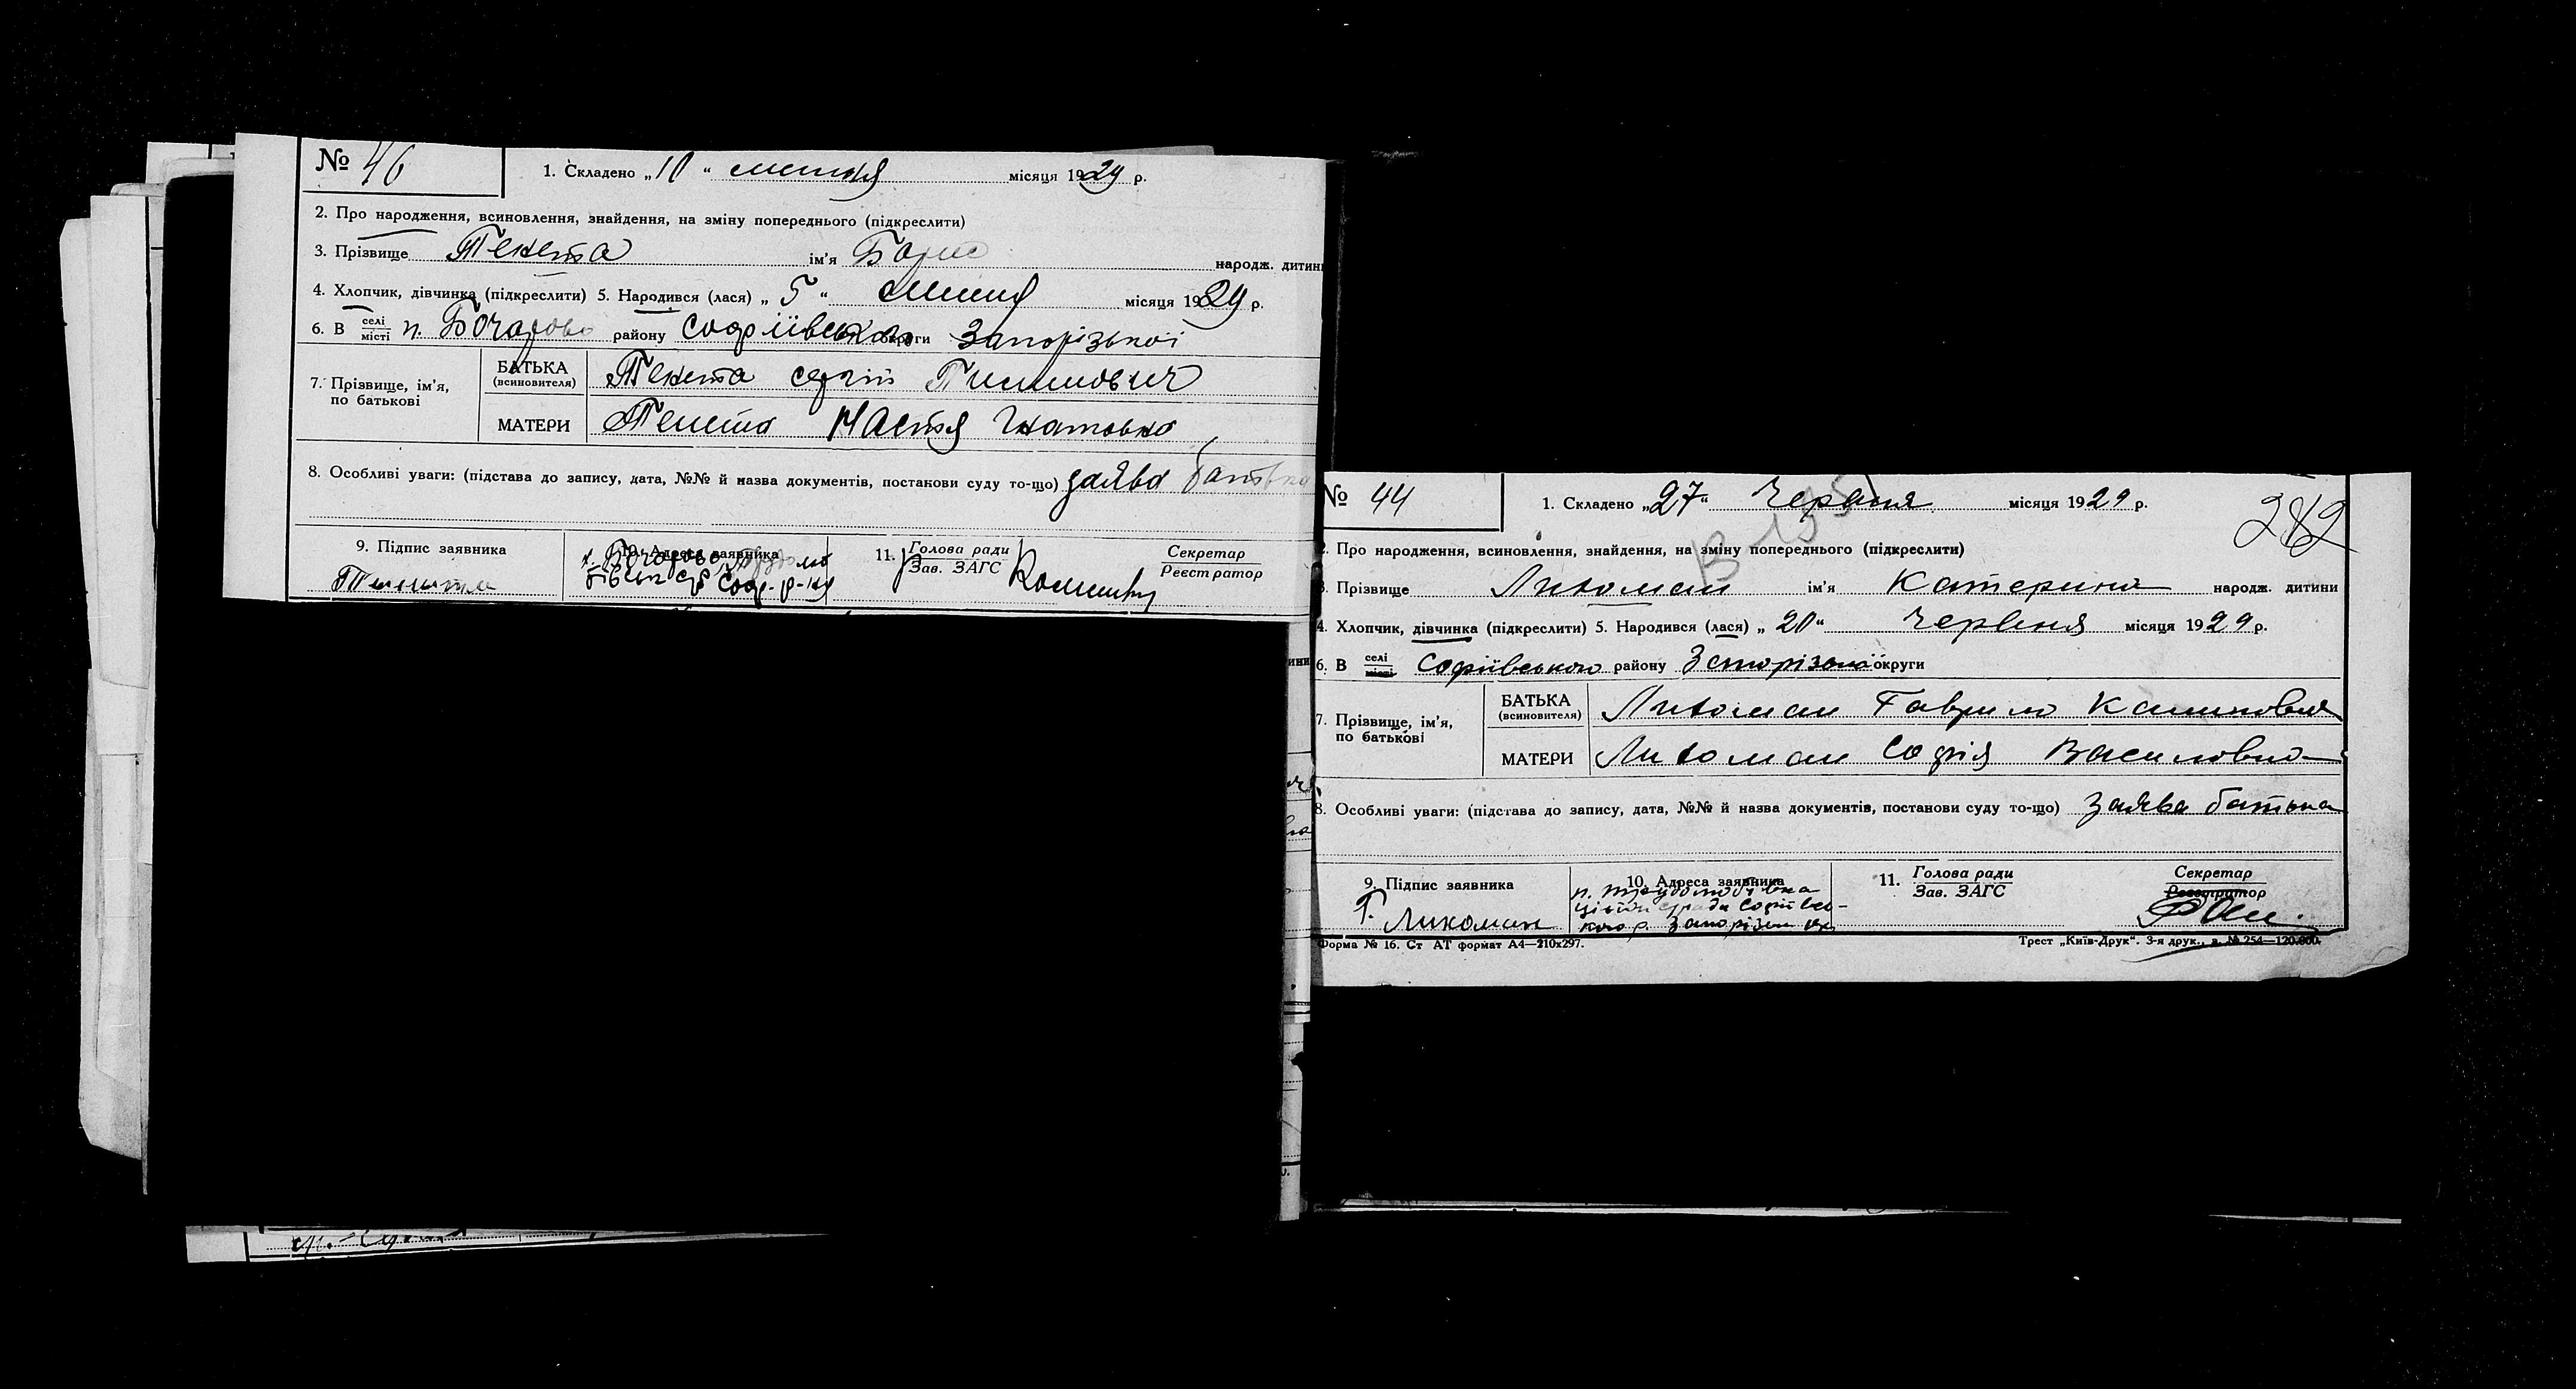 № 46
1. Складено „10“ липня місяця 1929 р.
2. Про народження, всиновлення, знайдення, на зміну попереднього (підкреслити)
3. Прізвище Текета ім'я Борис народж. дитини
4. Хлопчик, дівчинка (підкреслити) 5. Народився (лася) „5“ липня місяця 1929 р.
6. В селі місті п. Бочарово району Софіївського округи Запорізької
7. Прізвище, ім'я, по батькові
БАТЬКА (всиновителя) Текета Сергій Пилипович
МАТЕРИ Текета Настя Гнатовна
8. Особливі уваги: (підстава до запису, дата, №№ й назва документів, постанови суду то-що) заява батька
9. Підпис заявника
10. Адреса заявника
п. Бочарово,
Соф. р-ну
11. Голова ради
Зав. ЗАГС
Секретар
Реєстратор
№ 44
1. Складено „27“ Червня місяця 1929 р.
282
В 135
2. Про народження, всиновлення, знайдення, на зміну попереднього (підкреслити)
3. ПрізвищеЛикоман ім'я Катерина народж. дитини
4. Хлопчик, дівчинка (підкреслити) 5. Народився (лася) „20“ Червня місяця 1929 р.
6. В селі місті Софіївського району Запорізької округи
7. Прізвище, ім'я, по батькові
БАТЬКА (всиновителя)Ликоман Гаврило Калинович
МАТЕРИ Ликоман Софія Василовна
8. Особливі уваги: (підстава до запису, дата, №№ й назва документів, постанови суду то-що) заява батька
9. Підпис заявника
Г. Ликоман
10. Адреса заявника
п. Трудолюбівка
ської с/ради Софіївсь-
кого р. Запорізьк окр
11. Голова ради
Зав. ЗАГС
Секретар
Реєстратор
Форма № 16. Ст АТ формат А4—210х297.
Трест „Київ-Друк“. 3-я друк., з. № 254—120.000.